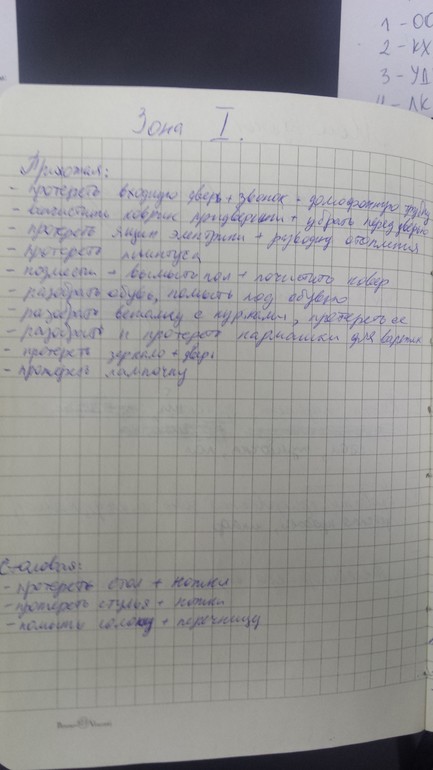 1 - ОС
2 - КХ
3 - УД
4 - ЛК
Зона I.
Прихожая:
- протереть входную дверь + звонок + домофонную трубку
- вычистить коврик придверный + убрать перед дверью
- протереть ящик электрики + разводку отопления
- протереть плинтуса
- подмести + вымыть пол + почистить ковер
- разобрать обувь, помыть под обувью
- разобрать вешалку с куртками, протереть ее
- разобрать и протереть кармашки для
- протереть зеркало + дверь
- протереть лампочку
Столовая:
- протереть стол + ножки
- протереть стулья + ножки
- помыть солонку + перечницу